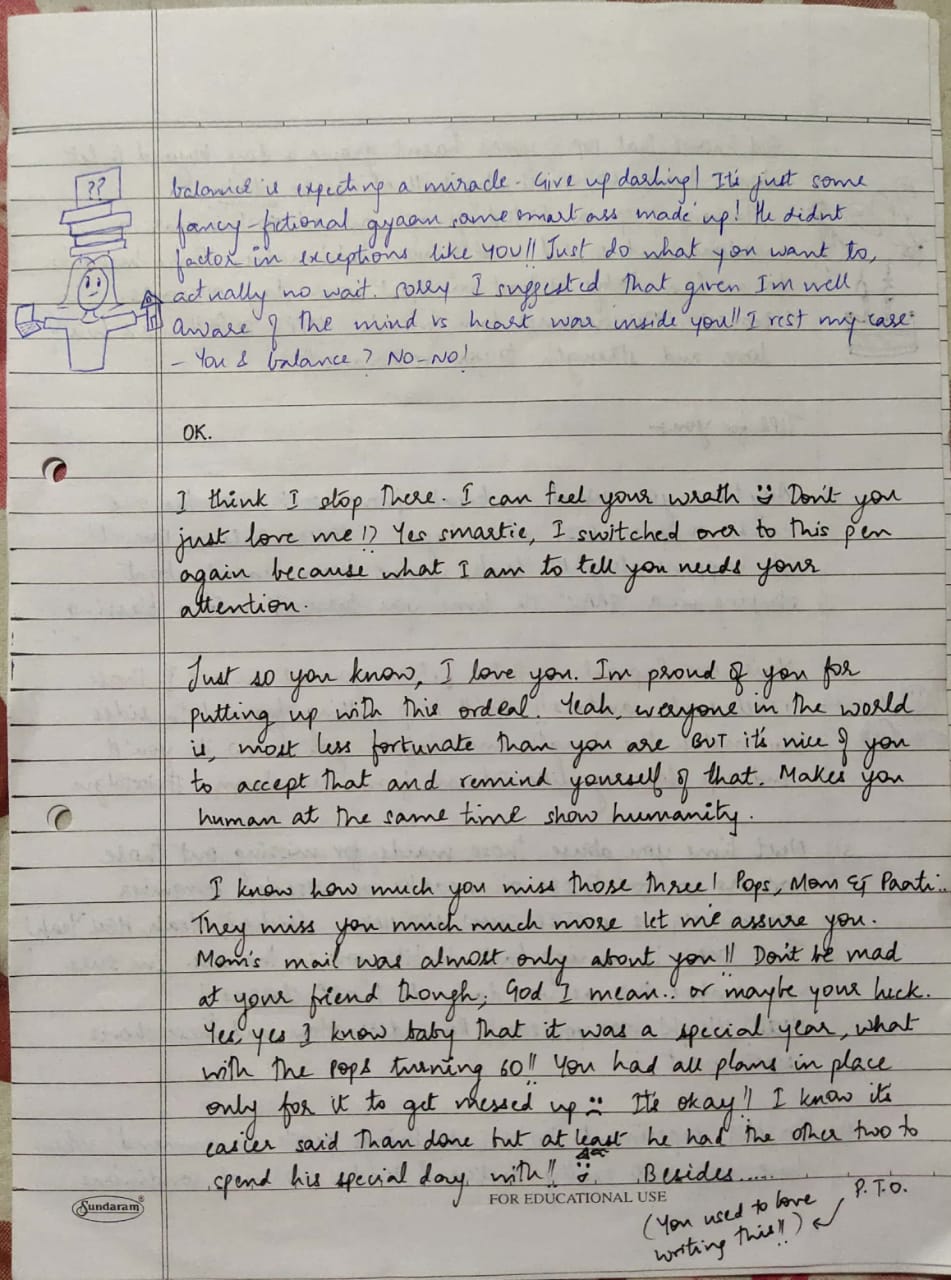 ??
balance is expecting a miracle. Give up darling! It's just some
fancy-fictional gyaan some smart ass made up! He didnt
factor in exceptions like YOU!! Just do what you want to,
actually no wait. sorry I suggested that given I'm well
aware of the mind vs heart war inside you!! I rest my case
- You & balance? NO-NO!
OK.
I think I stop there. I can feel your wrath Don't you
just love me!? Yes smartie, I switched over to this pen
again because what I am to tell you needs your
attention.
Just so you know, I love you. I'm proud of you for
putting up with this ordeal. Yeah, everyone in the world
is, most less fortunate than you are BUT it's nice of you
to accept that and remind yourself of that. Makes you
human at the same time show humanity.
I know how much you miss those three! Pops, Mom & Paati..
They miss you much much more let me assure you.
Mom's mail was almost only about you!! Don't be mad
at your friend though, God I mean.. or maybe your luck.
Yes, yes I know baby that it was a special year, what
with the pops turning 60!! You had all plans in place
only for it to get messed up It's okay!! I know its
easier said than done but at least he had the other two to
spend his special day with!! Besides.....
Sundaram
FOR EDUCATIONAL USE
P.T.O.
(You used to love
writing this!!)